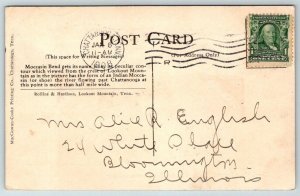 POST CARD
(This space for Writing Messages)
(Address Only)
JAN 6
Moccasin Bend gets its name from its peculiar con-
tour which viewed from the crest of Lookout Mountain
as in the picture has the form of an Indian Mocca-
sin (or shoe) the river flowing past Chattanooga at
this point is more than half mile wide.
Rollins & Hardison, Lookout Mountain, Tenn.
Mrs Alice R. English
24 White Place
Bloomington
Illinois